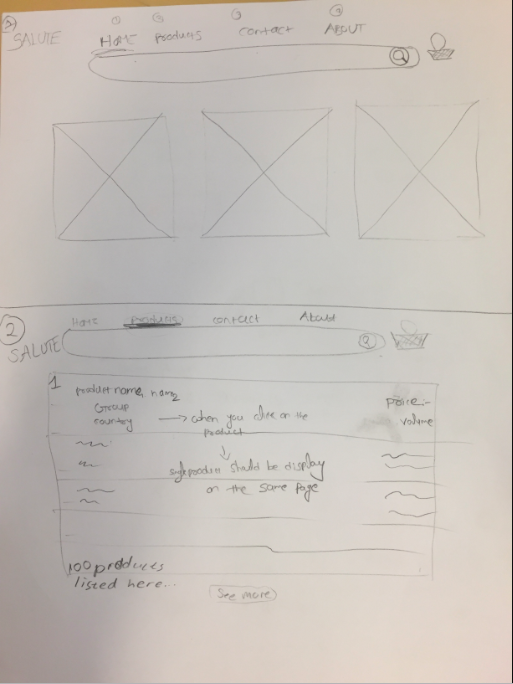 SALUTE
HOME Products contact ABOUT
2
Home products contact About
SALUTE
1
product name, name2
Group
country → when you click on the
product
price:-
volume
↓
single product should be display
on the same page
100 products
listed here...
See more